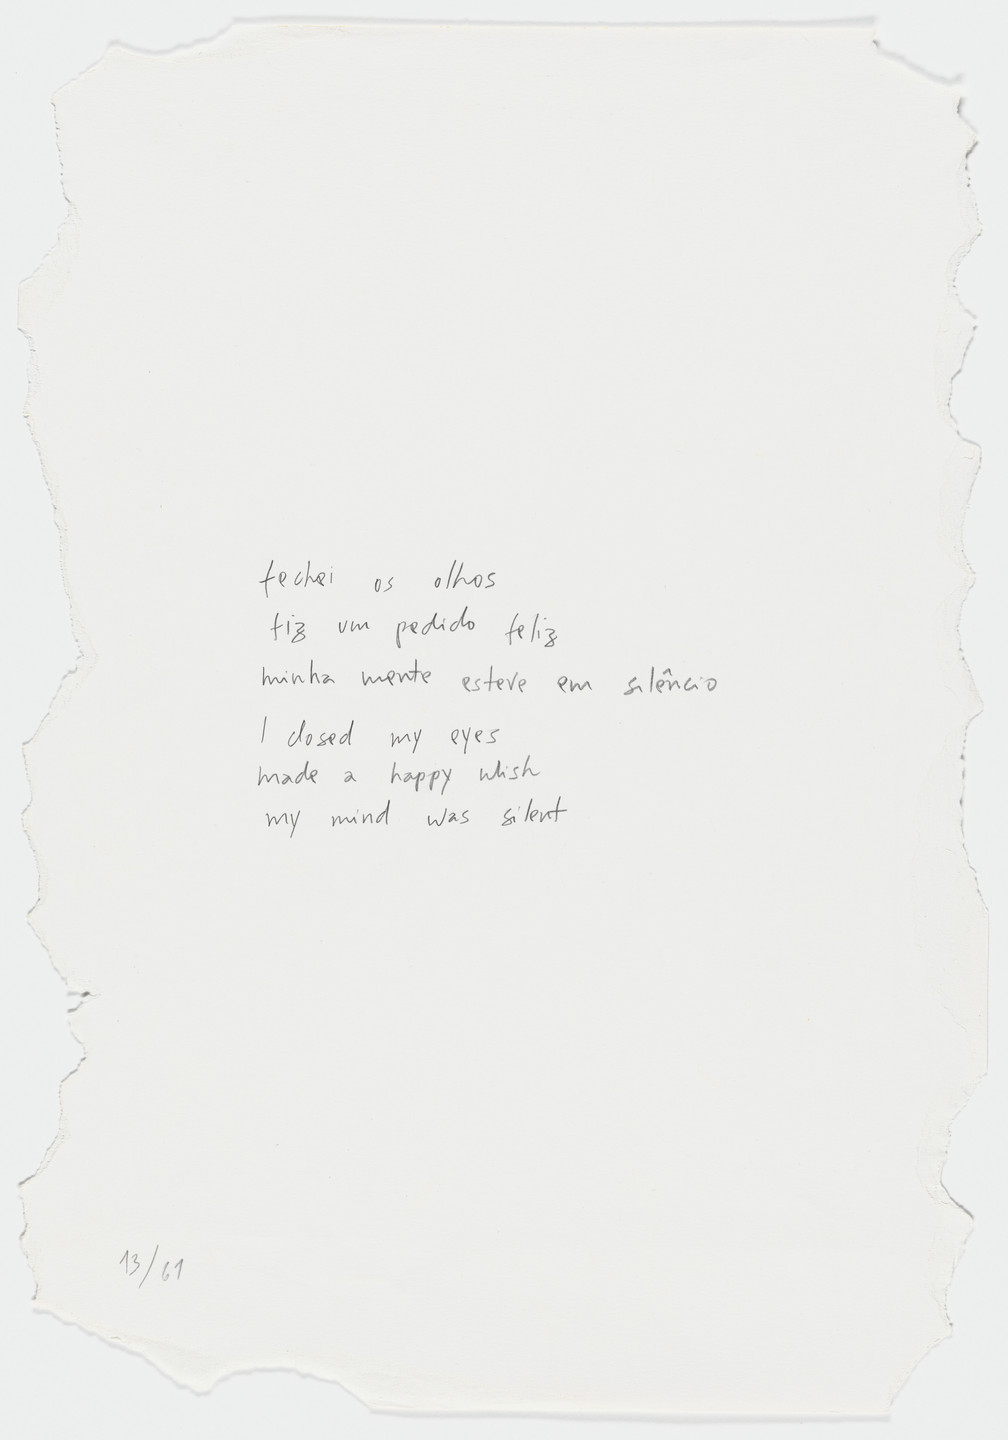 fechei os olhos
fiz um pedido feliz
minha mente esteve em silêncio
I closed my eyes
made a happy wish
my mind was silent
13/61